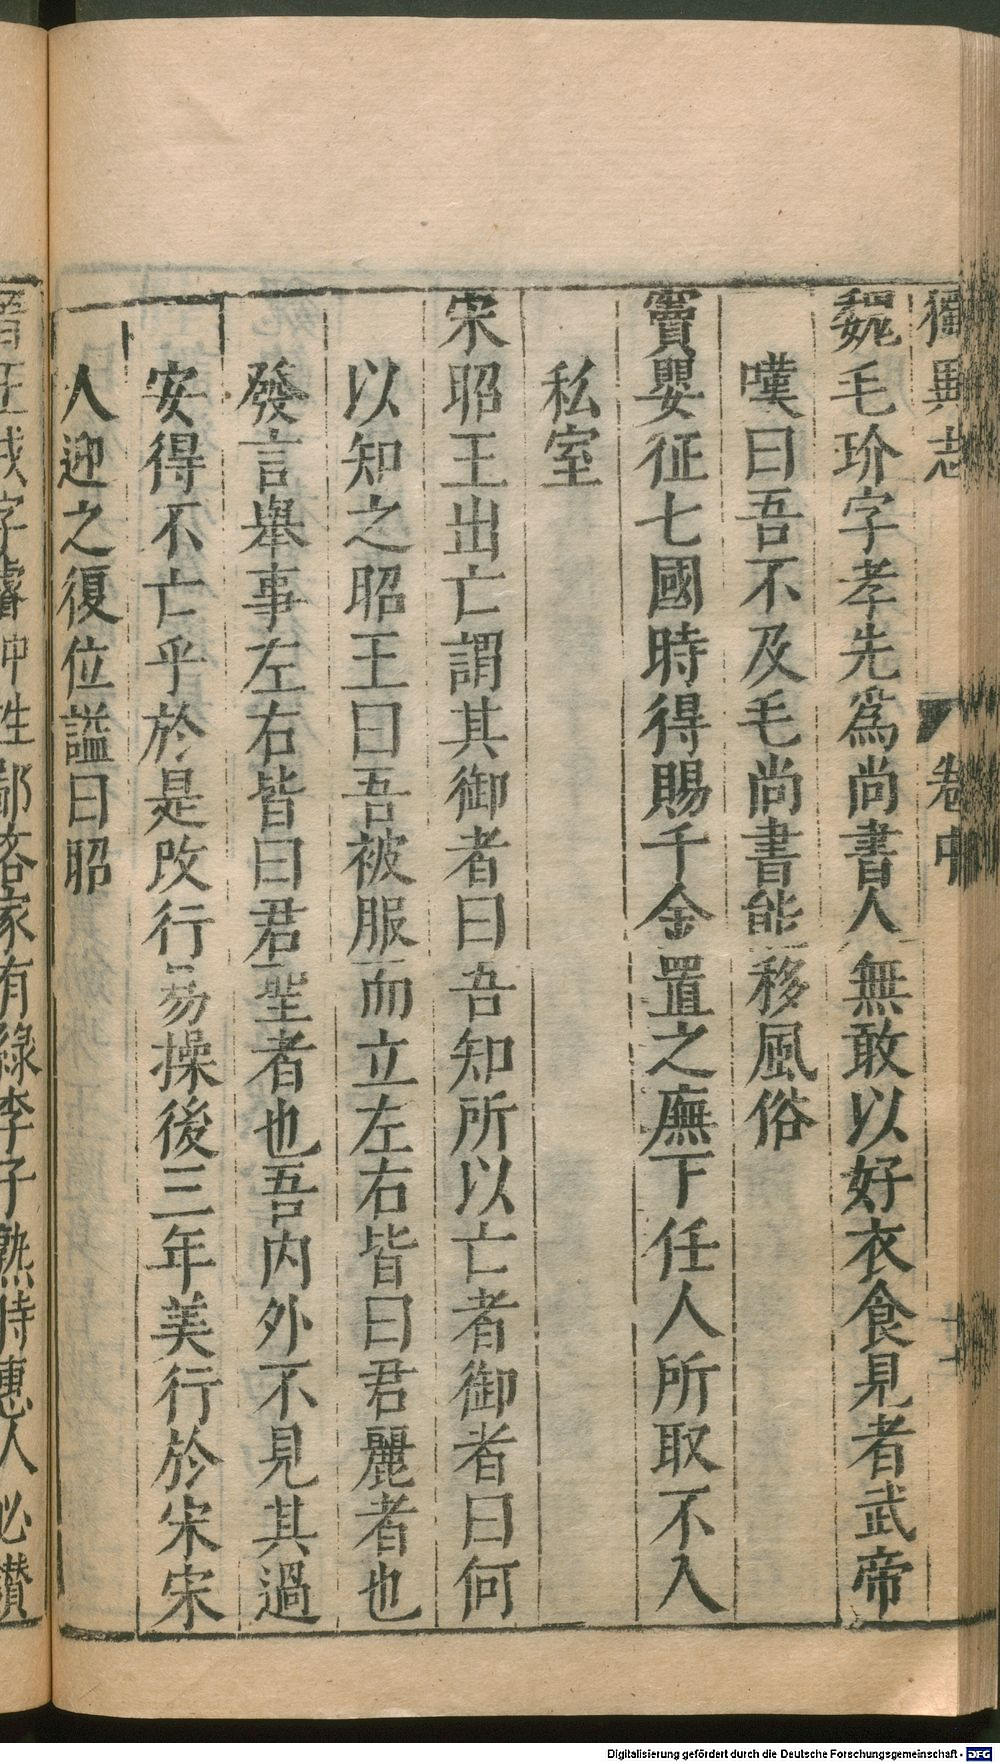 獨異志 卷中
魏毛玠字孝先爲尚書人無敢以好衣食見者武帝
嘆曰吾不及毛尚書能移風俗
竇嬰征七國時得賜千金置之廡下任人所取不入
私室
宋昭王出亡謂其御者曰吾知所以亡者御者曰何
以知之昭王曰吾被服而立左右皆曰君麗者也
發言舉事左右皆曰君聖者也吾内外不見其過
安得不亡乎於是改行易操後三年美行於宋宋
人迎之復位謚曰昭
晉王戎字濬冲性鄙吝家有綠李子熟待惠人必鑽
Digitalisierung gefördert durch die Deutsche Forschungsgemeinschaft - DFG